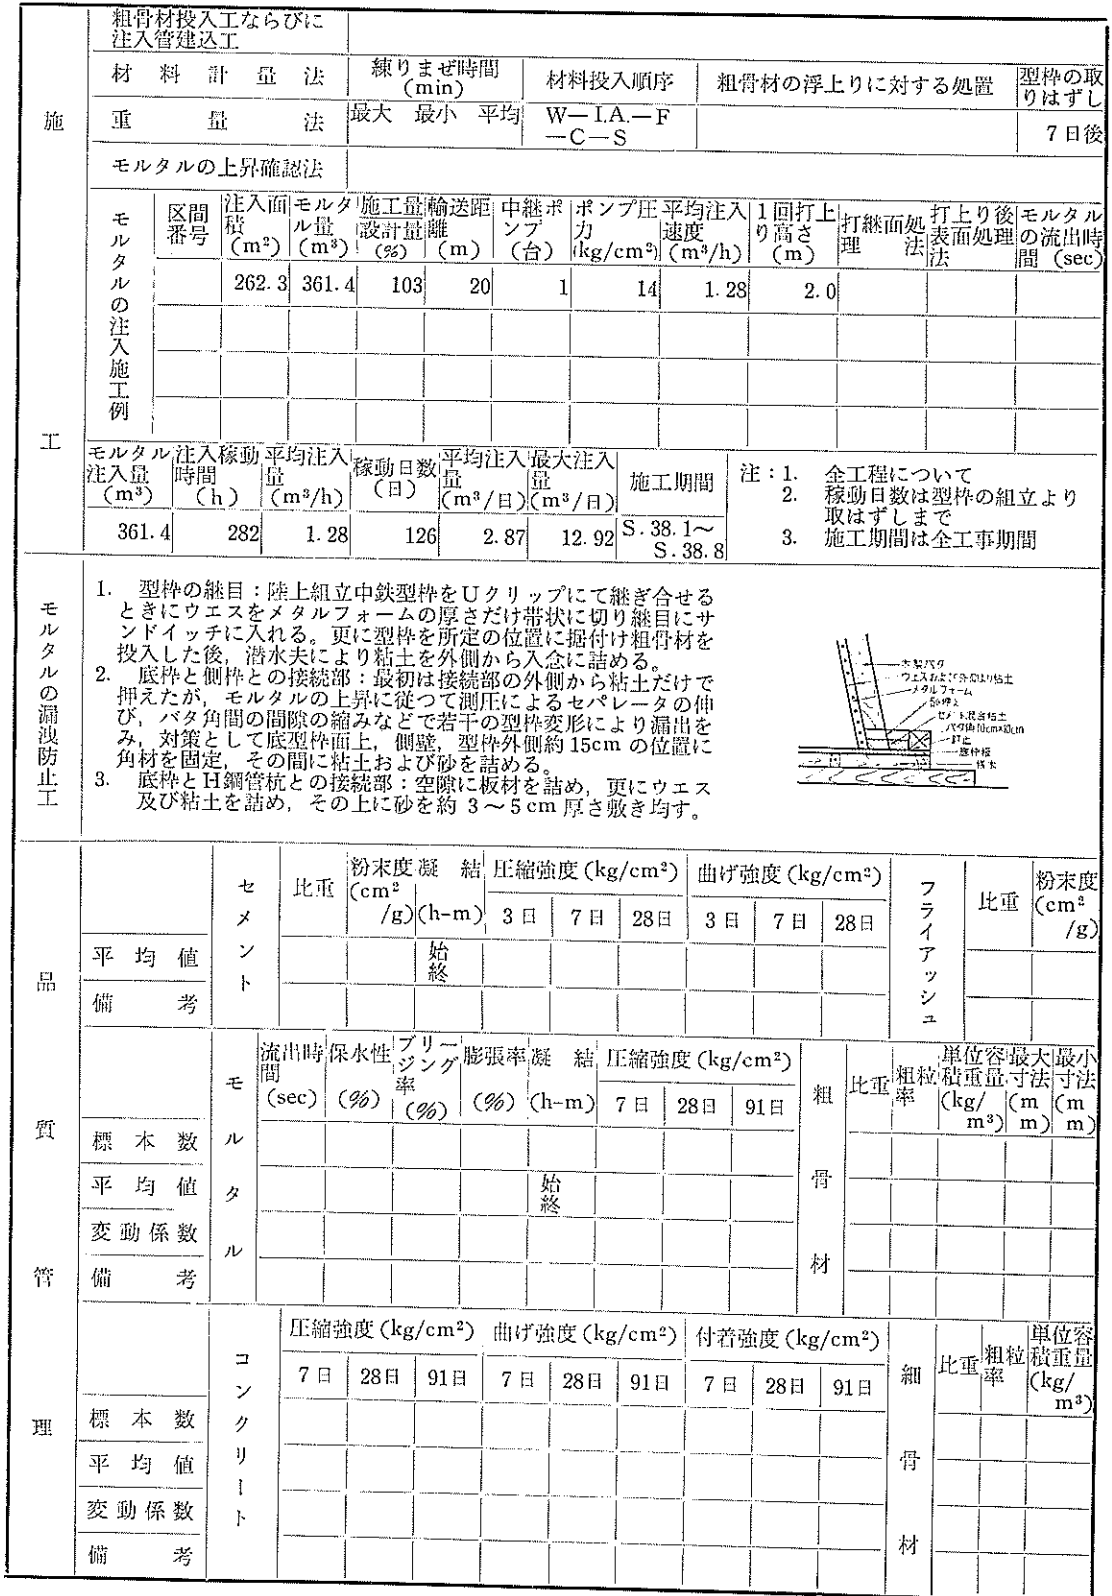 粗骨材投入工ならびに
注入管建込工
材料計量法 練りまぜ時間(min) 材料投入順序 粗骨材の浮上りに対する処置 型枠の取りはずし
施
重量法 最大 最小 平均 W—I.A.—F—C—S 7日後
モルタルの上昇確認法
モルタルの注入施工例
区間番号 注入面積(m²) モルタル量(m³) 施工量設計量(%) 輸送距離(m) 中継ポンプ(台) ポンプ圧力(kg/cm²) 平均注入速度(m³/h) 1回打上り高さ(m) 打継面処理法 打上り後表面処理法 モルタルの流出時間(sec)
262.3 361.4 103 20 1 14 1.28 2.0
工
モルタル注入量(m³) 注入稼動時間(h) 平均注入量(m³/h) 稼動日数(日) 平均注入量(m³/日) 最大注入量(m³/日) 施工期間
361.4 282 1.28 126 2.87 12.92 S.38.1〜S.38.8
注:1. 全工程について
2. 稼動日数は型枠の組立より
取はずしまで
3. 施工期間は全工事期間
モルタルの漏洩防止工
1. 型枠の継目:陸上組立中鉄型枠をUクリップにて継ぎ合せる
ときにウエスをメタルフォームの厚さだけ帯状に切り継目にサ
ンドイッチに入れる。更に型枠を所定の位置に据付け粗骨材を
投入した後,潜水夫により粘土を外側から入念に詰める。
2. 底枠と側枠との接続部:最初は接続部の外側から粘土だけで
押えたが,モルタルの上昇に従つて測圧によるセパレータの伸
び,バタ角間の間隙の縮みなどで若干の型枠変形により漏出を
み,対策として底型枠面上,側壁,型枠外側約15cmの位置に
角材を固定,その間に粘土および砂を詰める。
3. 底枠とH鋼管杭との接続部:空隙に板材を詰め,更にウエス
及び粘土を詰め,その上に砂を約3〜5cm厚さ敷き均す。
木製バタ
ウエスおよび外側より粘土
メタルフォーム
セメント混合粘土
バタ角10cm×10cm
底枠板
品質管理
セメント
比重 粉末度(cm²/g) 凝結(h-m) 圧縮強度(kg/cm²) 曲げ強度(kg/cm²)
3日 7日 28日 3日 7日 28日
フライアッシュ
比重 粉末度(cm²/g)
平均値 始終
備考
モルタル
流出時間(sec) 保水性(%) ブリージング率(%) 膨張率(%) 凝結(h-m) 圧縮強度(kg/cm²)
7日 28日 91日
粗骨材
比重 粗粒率 単位容積重量(kg/m³) 最大寸法(mm) 最小寸法(mm)
標本数
平均値 始終
変動係数
備考
コンクリート
圧縮強度(kg/cm²) 曲げ強度(kg/cm²) 付着強度(kg/cm²)
7日 28日 91日 7日 28日 91日 7日 28日 91日
細骨材
比重 粗粒率 単位容積重量(kg/m³)
標本数
平均値
変動係数
備考